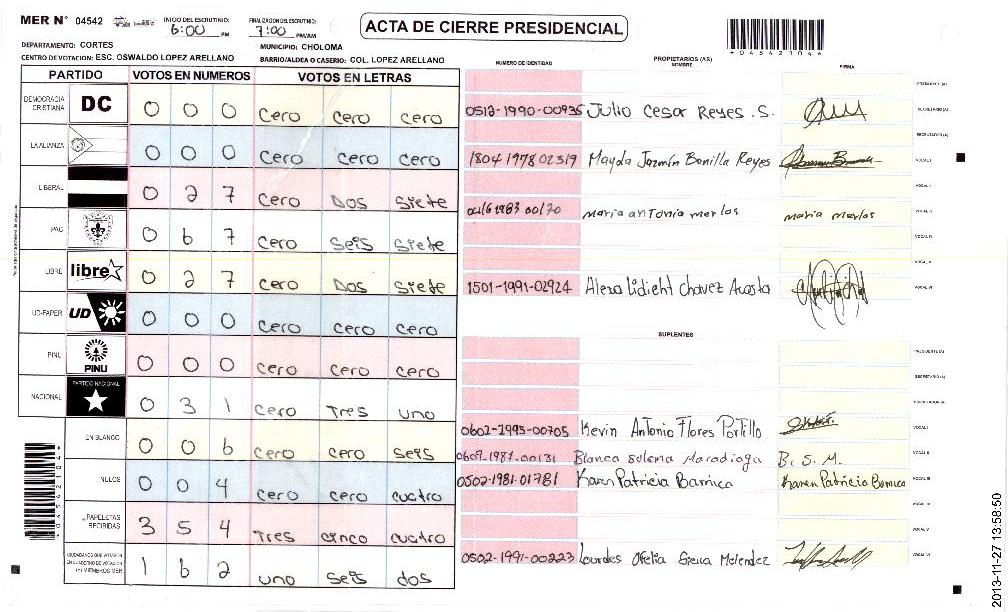 MER N° 04542
INICIO DEL ESCRUTINIO: 6:00 PM
FINALIZACION DEL ESCRUTINIO: 7:00 PM/AM
ACTA DE CIERRE PRESIDENCIAL
DEPARTAMENTO: CORTES
MUNICIPIO: CHOLOMA
CENTRO DE VOTACION: ESC. OSWALDO LOPEZ ARELLANO
BARRIO/ALDEA O CASERIO: COL. LOPEZ ARELLANO
PARTIDO VOTOS EN NUMEROS VOTOS EN LETRAS
DEMOCRACIA CRISTIANA DC 0 0 0 cero cero cero
LA ALIANZA 0 0 0 cero cero cero
LIBERAL 0 2 7 cero Dos siete
PAC 0 6 7 cero seis siete
LIBRE libre 0 2 7 cero Dos siete
UD-FAPER UD 0 0 0 cero cero cero
PINU PINU 0 0 0 cero cero cero
NACIONAL PARTIDO NACIONAL 0 3 1 cero Tres uno
EN BLANCO 0 0 6 cero cero seis
NULOS 0 0 4 cero cero cuatro
PAPELETAS RECIBIDAS 3 5 4 Tres cinco cuatro
CIUDADANOS QUE VOTARON 1 6 2 uno seis dos
NUMERO DE IDENTIDAD PROPIETARIOS (AS) NOMBRE FIRMA
PRESIDENTE (A)
0512-1990-00935 Julio Cesar Reyes .S. SECRETARIO (A)
ESCRUTADOR (A)
1804 1978 02319 Mayda Jazmín Bonilla Reyes VOCAL I
VOCAL II
1983 00170 maria antonia merlos maria merlos VOCAL III
VOCAL IV
VOCAL V
1501-1991-02924 Alexa Lidieht Chavez Acosta VOCAL VI
SUPLENTES
PRESIDENTE (A)
SECRETARIO (A)
ESCRUTADOR (A)
0602-1993-00705 Kevin Antonio Flores Portillo VOCAL I
0609-1987-00131 Blanca Suлema Maradiaga B. S. M. VOCAL II
0502-1981-01781 Karen Patricia Barnica Karen Patricia Barnica VOCAL III
VOCAL IV
VOCAL V
0502-1991-00223 Lourdes Ofelia Siena Melendez VOCAL VI
2013-11-27 13:58:50